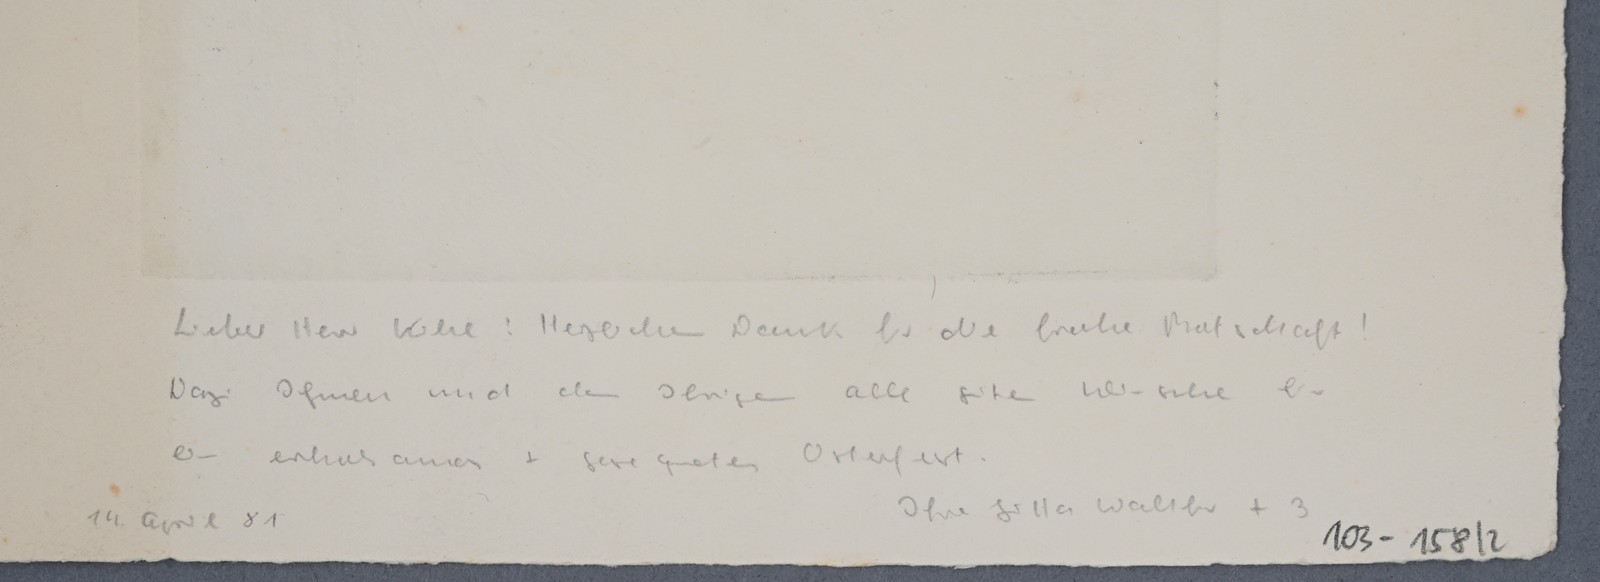 Lieber Herr ! Herzlichen Dank für die frohe Botschaft!
Dazu Ihnen und den Ihrigen alle guten Wünsche für
ein erholsames + gesegnetes Osterfest.
Ihre Gitta Walther + 3
14. April 81
103-158/2